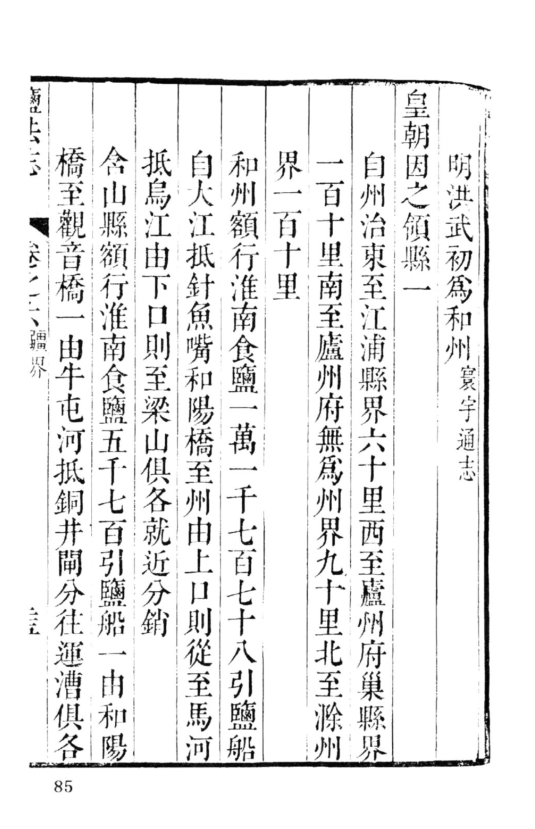 明洪武初爲和州寰宇通志
皇朝因之領縣一
自州治東至江浦縣界六十里西至廬州府巢縣界
一百十里南至廬州府無爲州界九十里北至滁州
界一百十里
和州額行淮南食鹽一萬一千七百七十八引鹽船
自大江抵針魚嘴和陽橋至州由上口則從至馬河
抵烏江由下口則至梁山俱各就近分銷
含山縣額行淮南食鹽五千七百引鹽船一由和陽
橋至觀音橋一由牛屯河抵銅井閘分往運漕俱各
鹽法志 卷之六 疆界
85